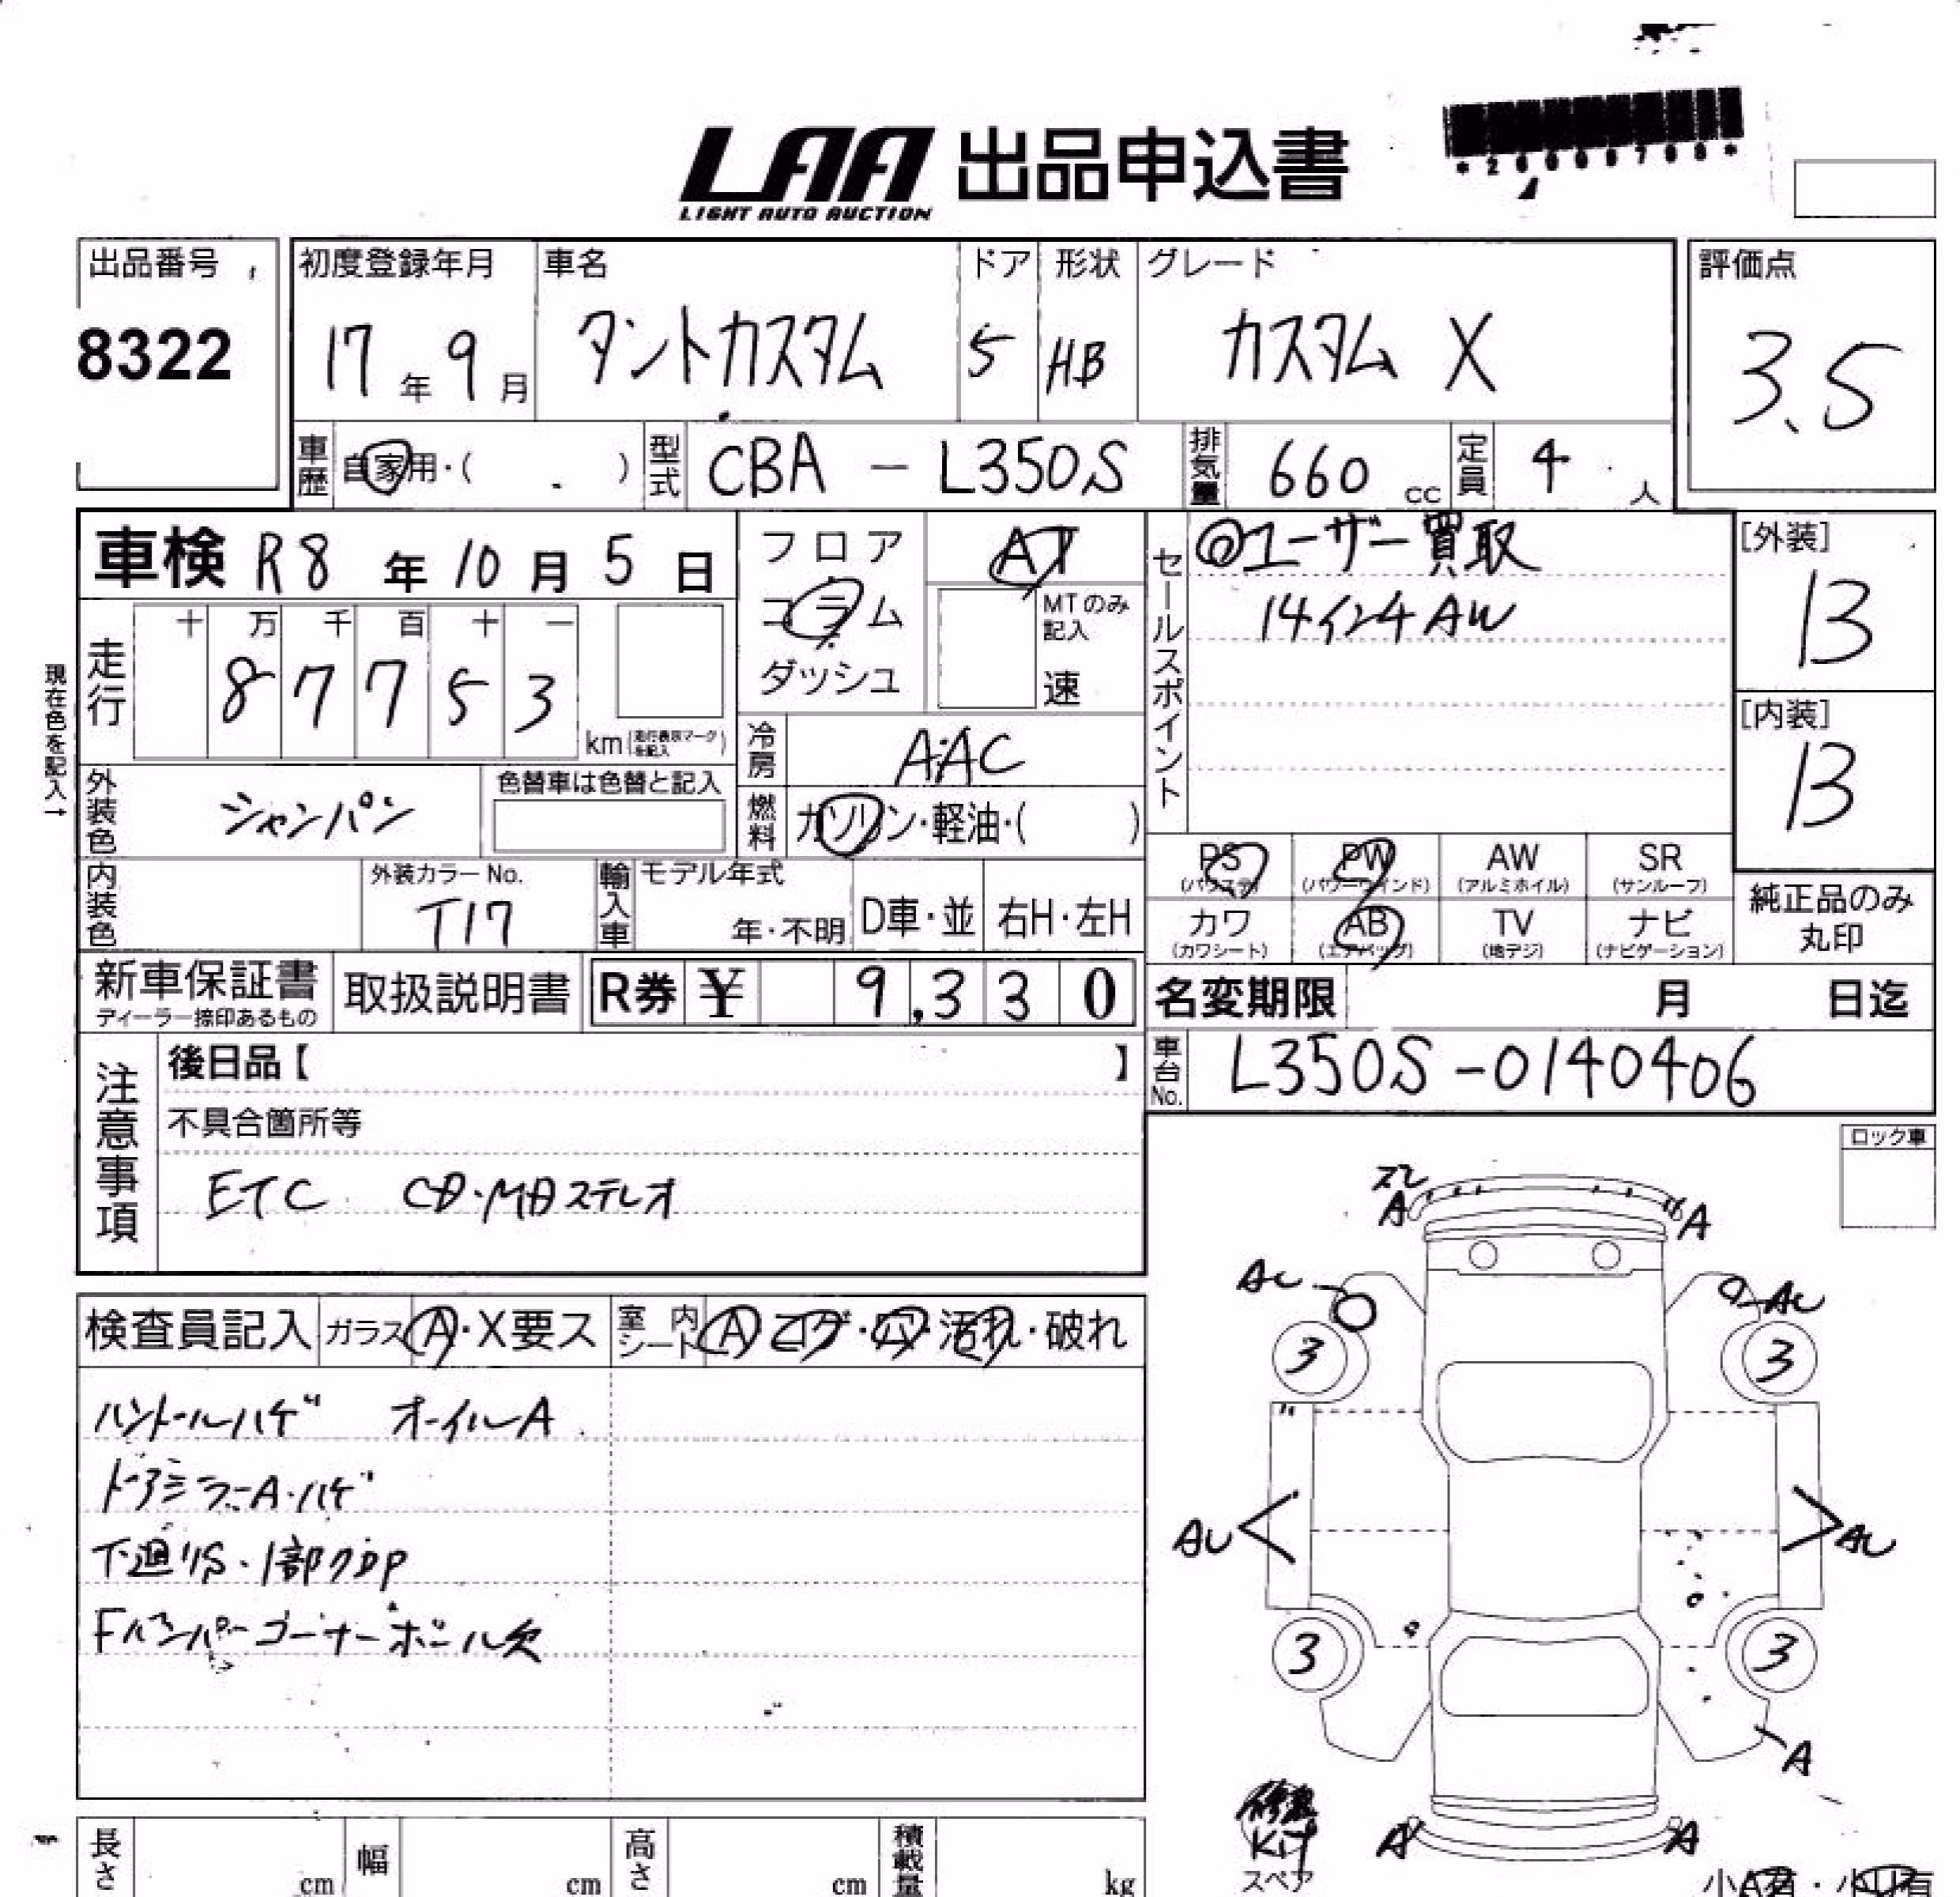 LAA 出品申込書
LIGHT AUTO AUCTION
出品番号
8322
初度登録年月
17年 9月
車名
タントカスタム
ドア
5
形状
HB
グレード
カスタム X
評価点
3.5
車歴
自家用・( )
型式
CBA - L350S
排気量
660 cc
定員
4 人
車検 R8 年 10 月 5 日
フロア
コラム
ダッシュ
AT
MTのみ記入
速
セールスポイント
◎ユーザー買取
14インチAW
[外装]
B
[内装]
B
現在色を記入→
走行
十 万 千 百 十 一
8 7 7 5 3
km
冷房
AAC
燃料
ガソリン・軽油・( )
外装色
シャンパン
色替車は色替と記入
内装色
外装カラーNo.
T17
輸入車
モデル年式
年・不明
D車・並
右H・左H
PS
(パワステ)
PW
(パワーウインド)
AW
(アルミホイル)
SR
(サンルーフ)
カワ
(カワシート)
AB
(エアバッグ)
TV
(地デジ)
ナビ
(ナビゲーション)
純正品のみ
丸印
新車保証書
ディーラー捺印あるもの
取扱説明書
R券 ¥ 9,330
名変期限 月 日迄
車台No.
L350S-0140406
注意事項
後日品【 】
不具合箇所等
ETC CD・MDステレオ
ロック車
検査員記入
ガラス A・X要ス
室内シート A コゲ・穴・汚れ・破れ
ハンドルハゲ オイルA
ドアミラーA・ハゲ
下廻りS・1部クDP
Fバンパーコーナーポール欠
スレ
A
A
AU
AU
3
3
AU
AU
3
3
A
A
A
KIT
スペア
長さ cm
幅 cm
高さ cm
積載量 kg
小A有・小U有